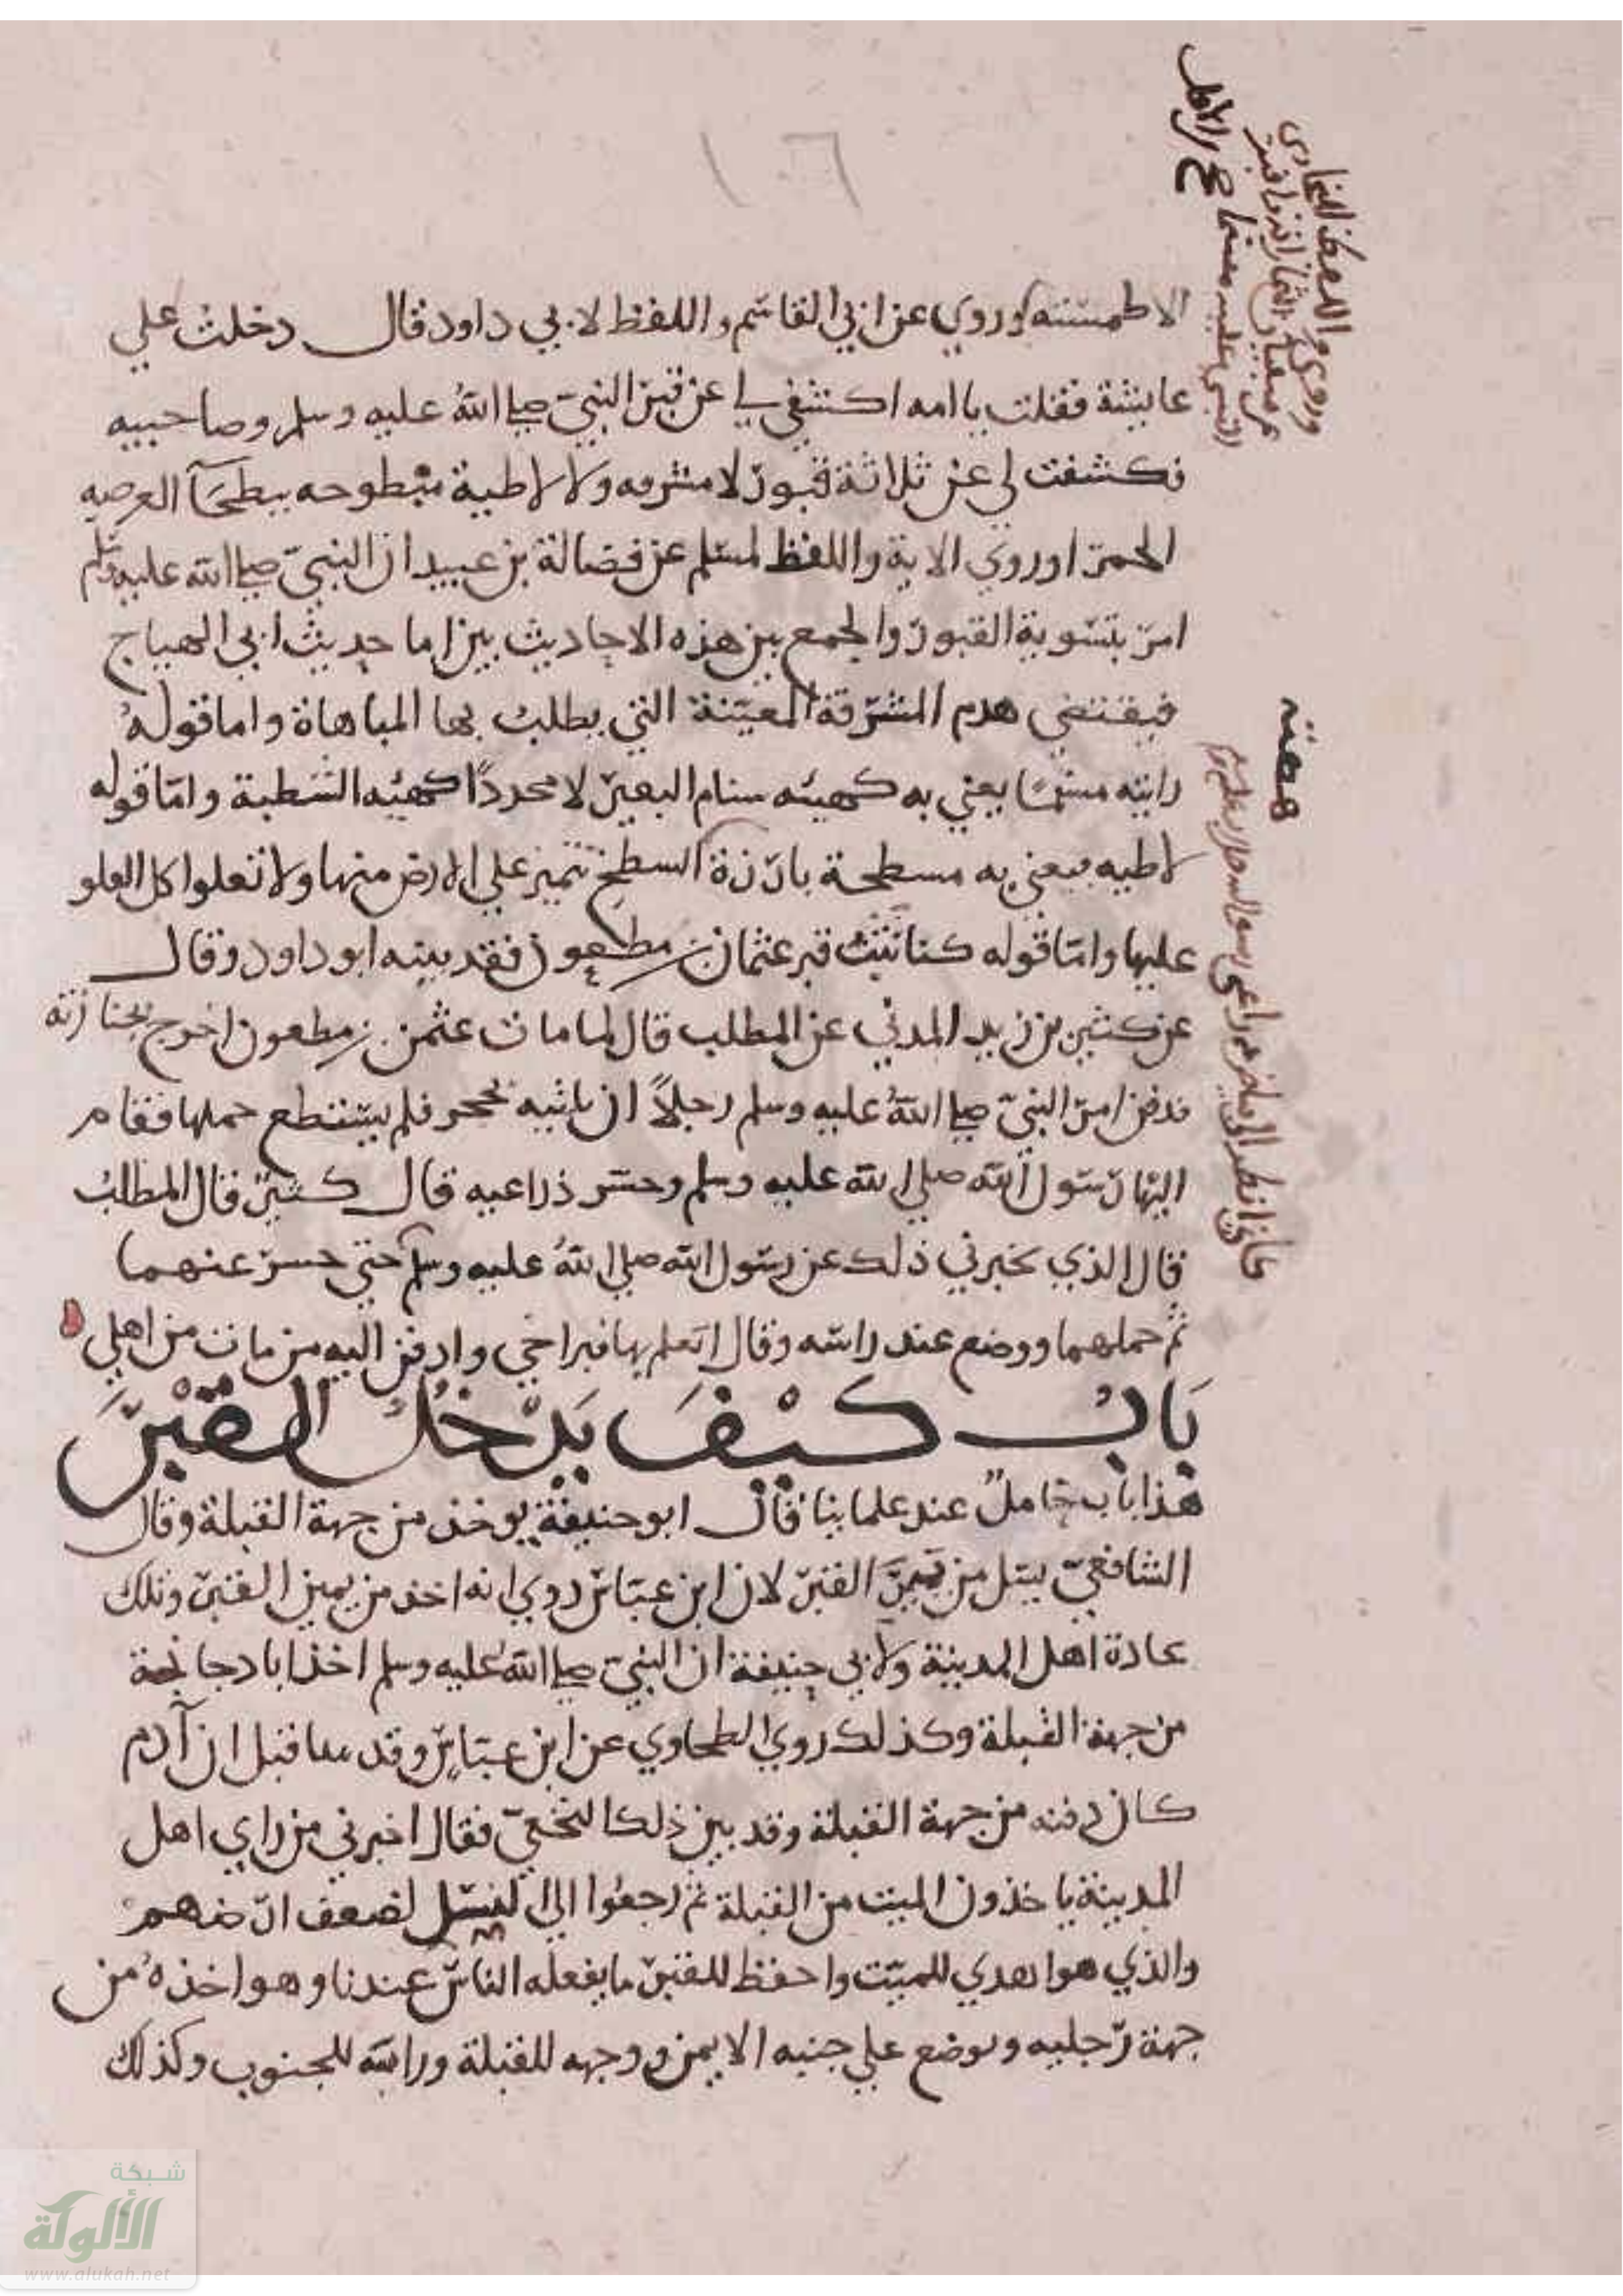 الاطمسته وروي عن ابي القاسم واللفظ لابي داود قال دخلت علي
عايشة فقلت ياامه اكشفي لي عن قبر النبي صلي الله عليه وسلم وصاحبيه
فكشفت لي عن ثلاثة قبور لا مشرفه ولا لاطية مبطوحه ببطحآ العرصه
الحمرا وروي الاية واللفظ لمسلم عن فضالة بن عبيد ان النبي صلي الله عليه وسلم
امر بتسوية القبور والجمع بين هذه الاحاديث بين اما حديث ابي الهياج
فيقتضي هدم المشرفة المعينة التي يطلب بها المباهاة واما قوله
رايته مسنما يعني به كهيئه سنام البعير لا محددا كهيئه الشطبة واما قوله
لاطيه فيعني به مسطحة بارزة السطح تتميز علي الارض منها ولا تعلوا كل العلو
عليها واما قوله كنا نثب قبر عثمان بن مظعون فقد بينه ابو داود وقال
عن كثير بن زيد المدني عن المطلب قال لما مات عثمن بن مطعون اخرج بجنازته
فدفن امر النبي صلي الله عليه وسلم رجلاً ان ياتيه بحجر فلم يستطع حملها فقام
اليها رسول الله صلي الله عليه وسلم وحسر ذراعيه قال كثير قال المطلب
قال الذي يخبرني ذلك عن رسول الله صلي الله عليه وسلم حتي حسر عنهما
ثم حملهما ووضع عند راسه وقال اتعلم بها قبر اخي وادفن اليه من مات من اهلي
بَابُ كَيْفَ يَدْخُلُ القَبْرَ
هذا باب خامل عند علماينا قال ابو حنيفة يوخذ من جهة القبلة وقال
الشافعي يسل من يمين القبر لان ابن عباس روي انه اخذ من يمين القبر وتلك
عادة اهل المدينة ولابي حنيفة ان النبي صلي الله عليه وسلم اخذ ابا دجانة
من جهة القبلة وكذلك روي الطحاوي عن ابن عباس وقد قبل ان آدم
كان دفنه من جهة القبلة وقد بين ذلك النخعي فقال اخبرني من راي اهل
المدينة ياخذون الميت من القبلة ثم رجعوا الي السل لضعف ارضهم
والذي هو اهدي للميت واحفظ للقبر ما يفعله الناس عندنا وهو اخذه من
جهة رجليه ويوضع علي جنبه الايمن ووجهه للقبلة وراسه للجنوب وكذلك
وروي واللفظ البخاري
عن سفيان التمار
شبكة
الألوكة
www.alukah.net